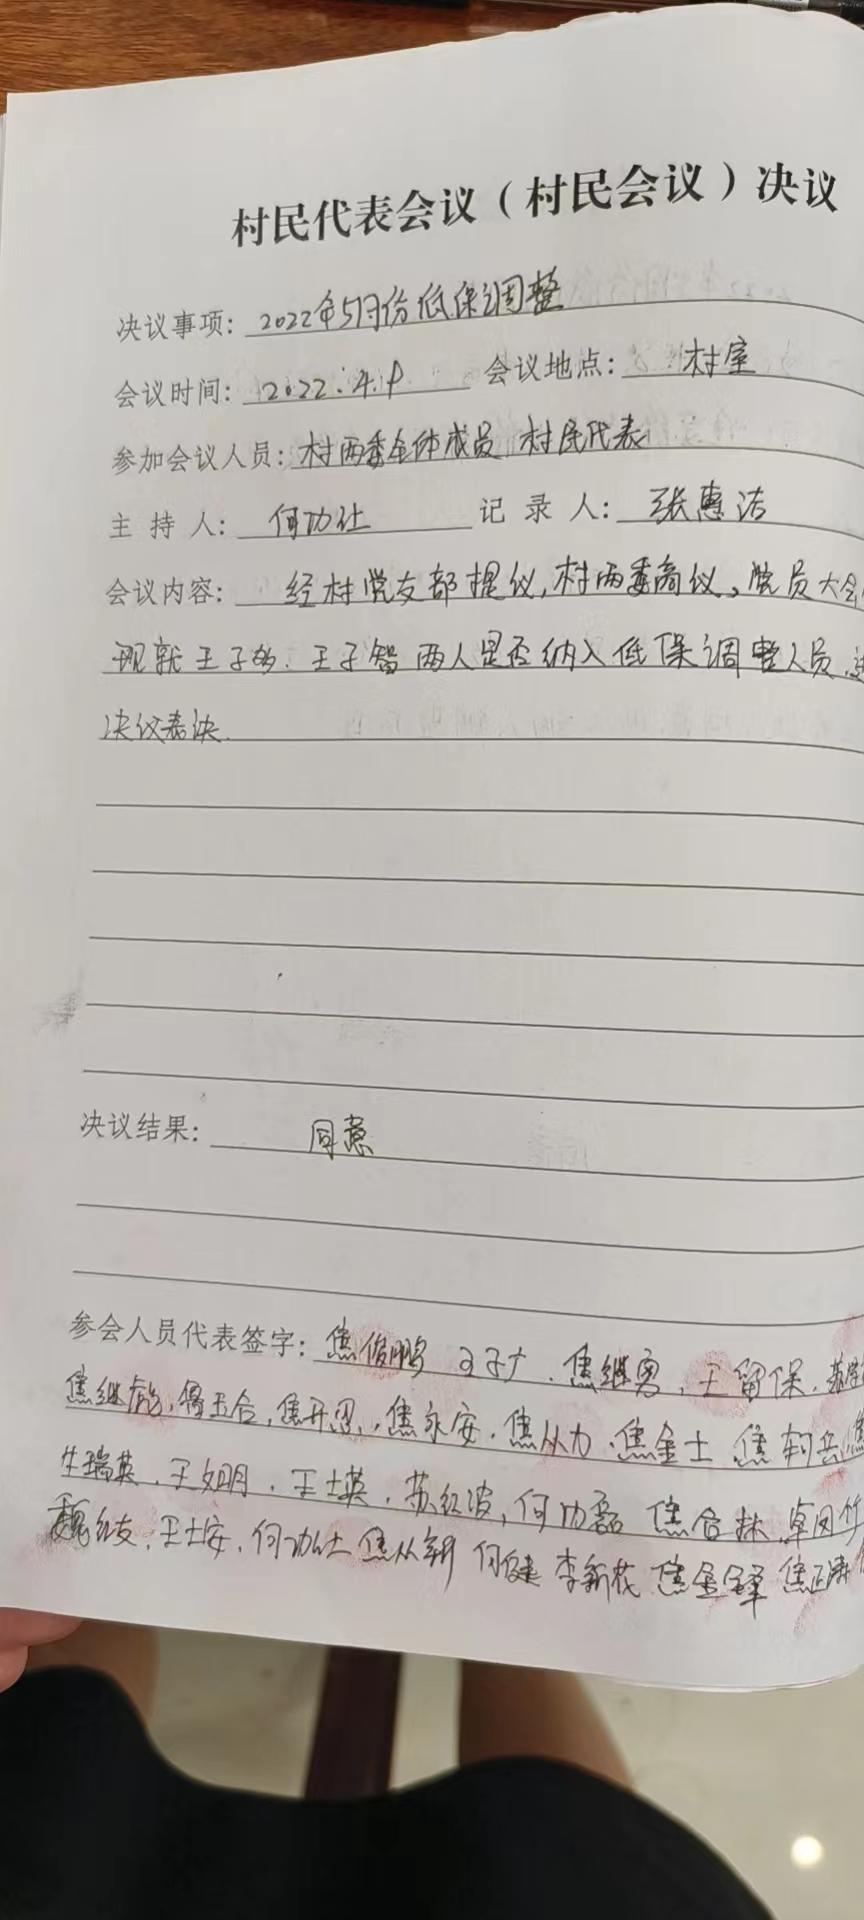 村民代表会议（村民会议）决议
决议事项：2022年5月份低保调整
会议时间：2022.4.9 会议地点：村室
参加会议人员：村两委全体成员 村民代表
主持人：何功仕 记录人：张惠洁
会议内容：经村党支部提议，村两委商议，党员大会
现就王子 王子智两人是否纳入低保调整人员
决议表决.
决议结果：同意
参会人员代表签字：焦俊鹏 王子广.焦继勇，王留保.
焦继彪，焦开恩，焦永安.焦从力.焦金士
牛瑞英.王如明.王士英.苏红波，何功磊 焦合林
魏红友，王士安，何功仕 焦从新 何俊建 李新花 焦金铎 焦正